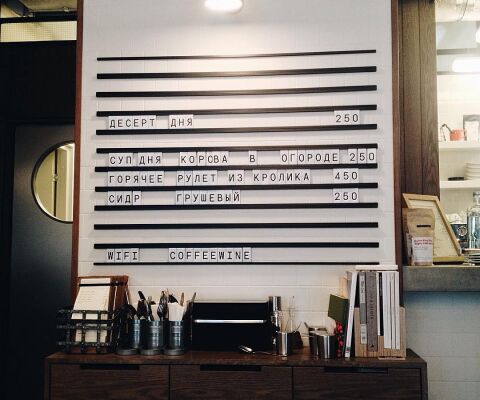 ДЕСЕРТ ДНЯ 250
СУП ДНЯ КОРОВА В ОГОРОДЕ 250
ГОРЯЧЕЕ РУЛЕТ ИЗ КРОЛИКА 450
СИДР ГРУШЕВЫЙ 250
WIFI COFFEEWINE